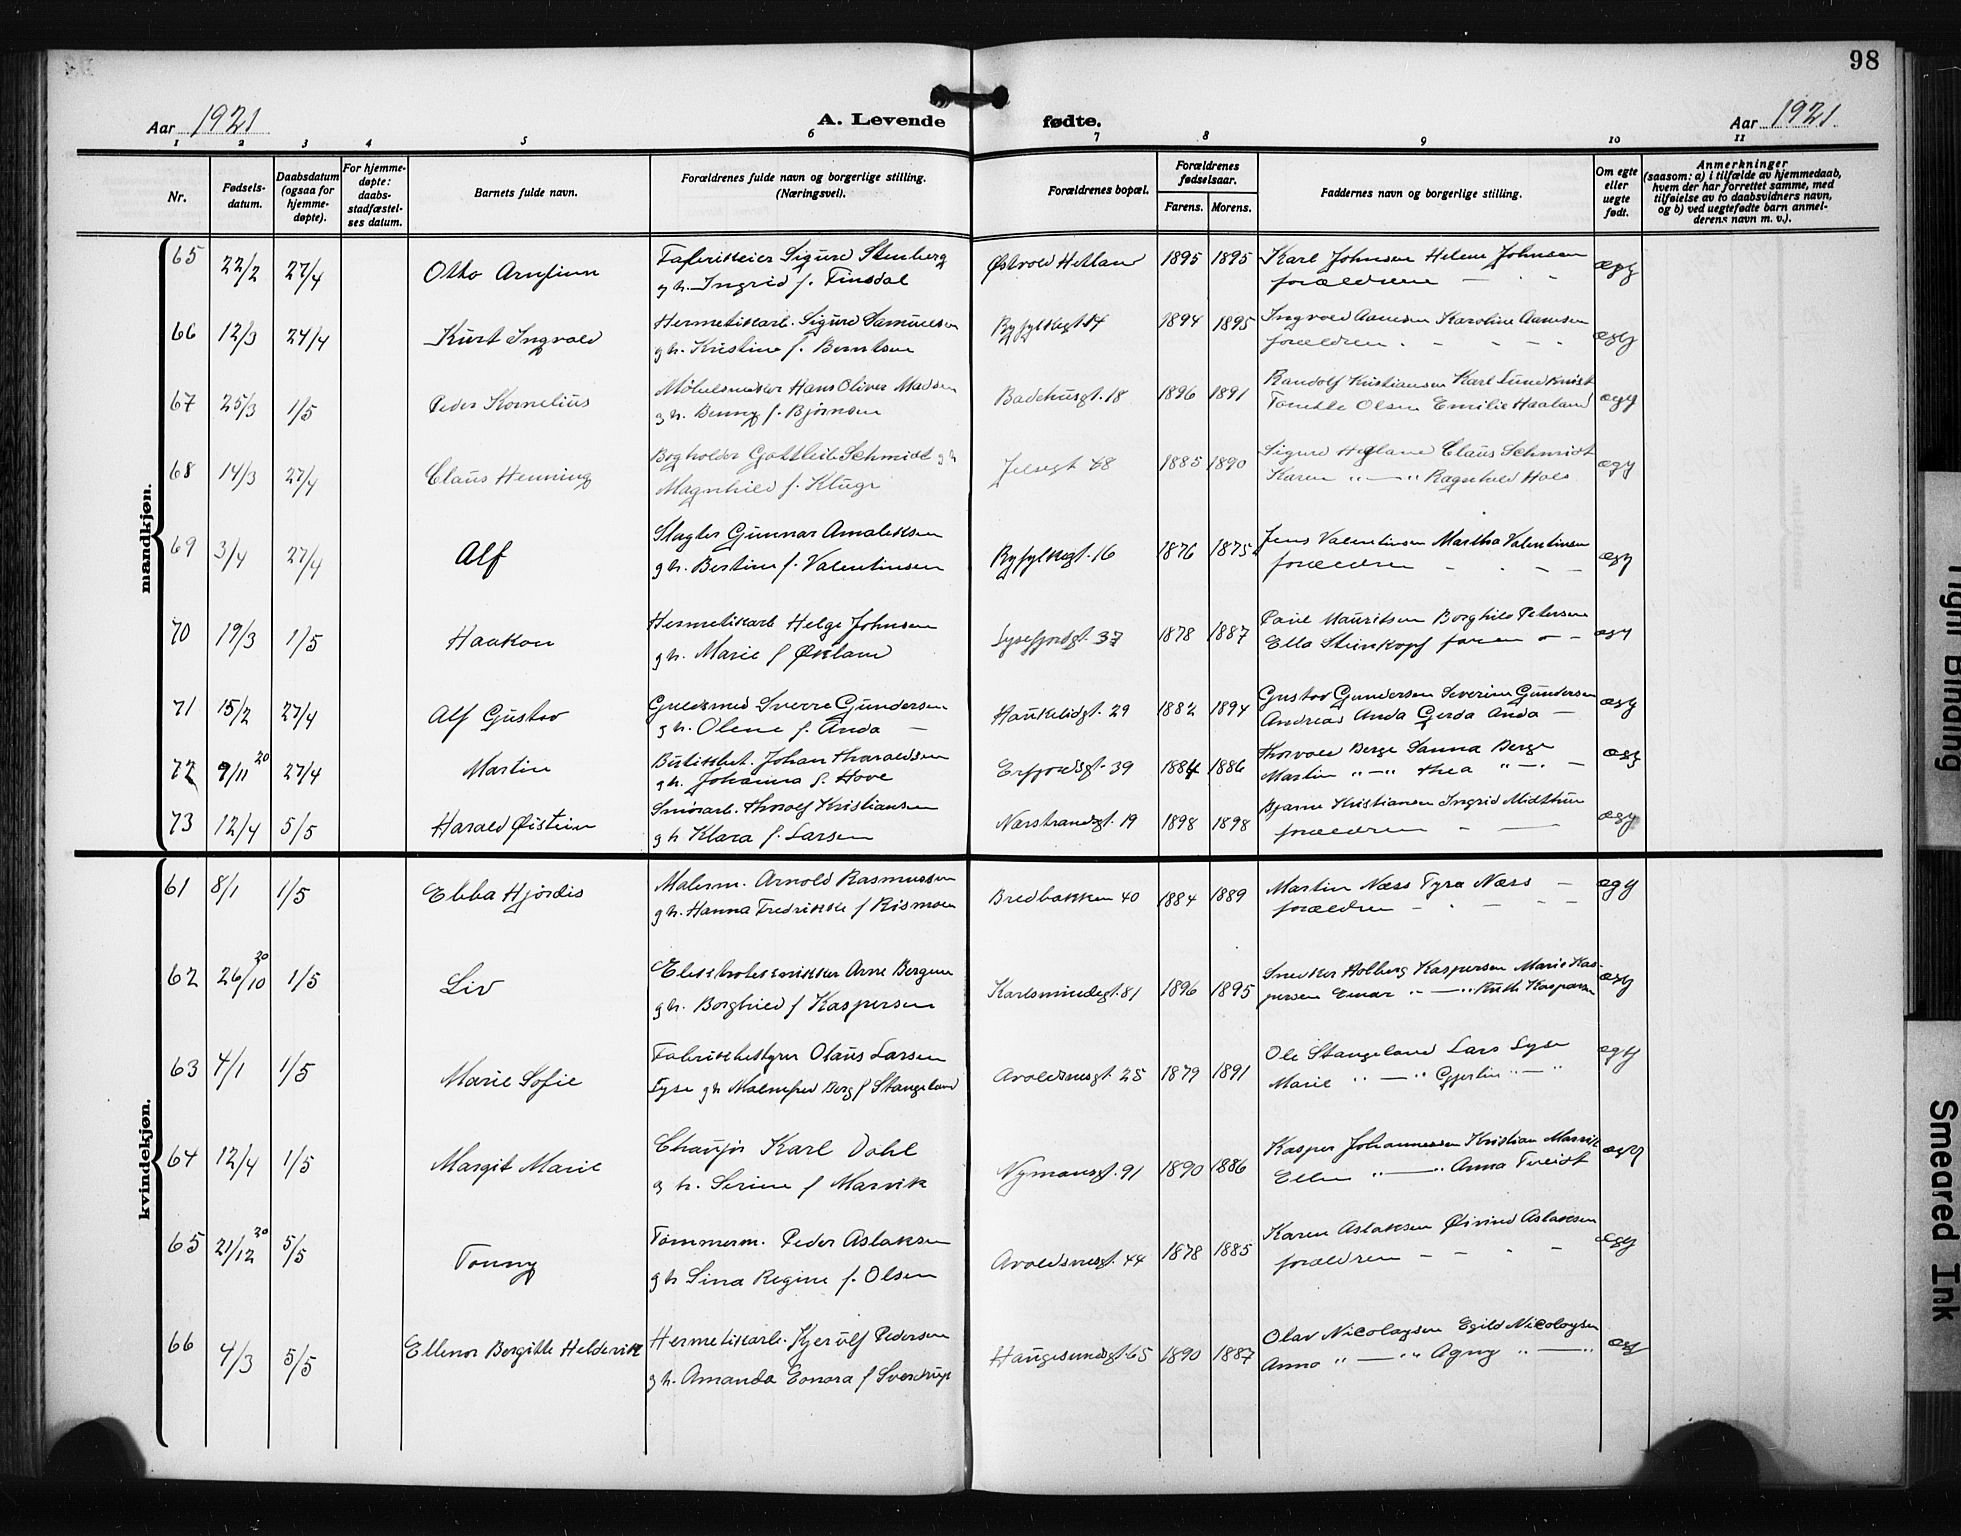 98
Aar 1921
A. Levende
fødte.
Aar 1921.
1 2 3 4 5 6 7 8 9 10 11
Nr.
Fødsels-
datum.
Daabsdatum
(ogsaa for
hjemme-
døpte).
For hjemme-
døpte:
daabs-
stadfæstel-
ses datum.
Barnets fulde navn.
Forældrenes fulde navn og borgerlige stilling.
(Næringsvei).
Forældrenes bopæl.
Forældrenes
fødselsaar.
Farens. Morens.
Faddernes navn og borgerlige stilling.
Om egte
eller
uegte
født.
Anmerkninger
(saasom: a) i tilfælde av hjemmedaab,
hvem der har forrettet samme, med
tilføielse av to daabsvidners navn,
og b) ved uegtefødte barn anmel-
derens navn m. v.).
mandkjøn.
65 22/2 27/4 Otto Arnfinn
Fabrikeier Sigurd Stenberg
g h. Ingrid f. Tinsdal
Østvold Hetland 1895 1895
Karl Johnsen Helene Johnsen
forældrene — " "
egt
66 12/3 24/4 Kurt Ingvald
Hermetikarb. Sigurd Samuelsen
g h. Kristine f. Berntsen
Ryfylkegt 14 1894 1895
Ingvald Aamsen Karoline Aamsen
forældren - - - -
egt
67 25/3 1/5 Peder Kornelius
Møbelsnekker Hans Oliver Madsen
g h. Benny f. Bjørnsen
Badehusgt. 18 1896 1891
Randolf Kristiansen Karl Lundkvist
Tonette Olsen Emilie Haaland
egt
68 14/3 27/4 Claus Henning
Bogholder Gottleib Schmidt g h
Magnhild f. Kluge
Jelsegt 48 1885 1890
Sigurd Hetland Claus Schmidt
Karen " — " Ragnhild Hals
egt
69 3/4 27/4 Alf
Slagter Gunnar Amaleksen
g h. Bertine f. Valentinsen
Ryfylkegt. 16 1876 1875
Jens Valentinsen Martha Valentinsen
forældren - - - -
egt
70 19/3 1/5 Haakon
Hermetikarb Helge Johnsen
g h. Marie f Økland
Lysefjordgt. 37 1878 1887
Paul Mauritsen Borghild Petersen
Ella Steinkopf faren - -
egt
71 15/2 27/4 Alf Gustav
Guldsmed Sverre Gundersen
g h. Olene f. Anda —
Haukeligt. 29 1882 1894
Gustav Gundersen Severine Gundersen
Andreas Anda Gerda Anda —
egt
72 9/11 20 27/4 Martin
Butikkbet. Johan Tharaldsen
g h. Johanna f. Hove
Erfjordsgt. 39 1884 1886
Thorvald Berge Sanna Berge
Martin " — " Thea " — " —
egt
73 12/4 5/5 Harald Øistein
Smørarb. Thoralf Kristiansen
g h Klara f. Larsen
Narstrandsgt. 19 1898 1898
Bjarne Kristiansen Ingrid Midthun
forældren - —
egt
kvindekjøn.
61 8/1 1/5 Ebba Hjørdis
Malerm. Arnold Rasmussen
g h. Hanna Fredrikke f Rismoen
Bredbakken 40 1884 1889
Martin Næss Tyra Næss —
forældren - - - - -
egt
62 26/10 20 1/5 Liv
Arne Bergene
g h. Borghild f Kaspersen
Karlsmindegt. 81 1896 1895
Snekker Holberg Kaspersen Marie Kas-
persen Einar " — " Ruth Kaspersen
egt
63 4/1 1/5 Marie Sofie
Fabrikbestyrer Olaus Larsen
Lyse g h Malmfrid Berg f Stangeland
Avaldsnesgt. 25 1879 1891
Ole Stangeland Lars Lyse
Marie " — " Gjertine " — "
egt
64 12/4 1/5 Margit Marie
Chaufør Karl Dahl
g h. Serine f Marvik
Nymansgt. 91 1890 1886
Kasper Johannessen Kristian Marvik
Ellen " — " Anna Tveidt
egt
65 21/12 20 5/5 Tonny
Tømmerm. Peder Aslaksen
g h Sina Regine f. Olsen
Avaldsnesgt. 44 1878 1885
Karen Aslaksen Øivind Aslaksen
forældren - - - -
egt
66 4/3 5/5 Ellenor Bergitte Heldevik
Hermetikarb. Kjerulf Pedersen
g h. Amanda Eonora f Sverdrup
Haugesundsgt. 65 1890 1887
Olav Nicolaysen Egild Nicolaysen
Anna " — " Agny " — "
egt
Tight Binding
Smeared Ink